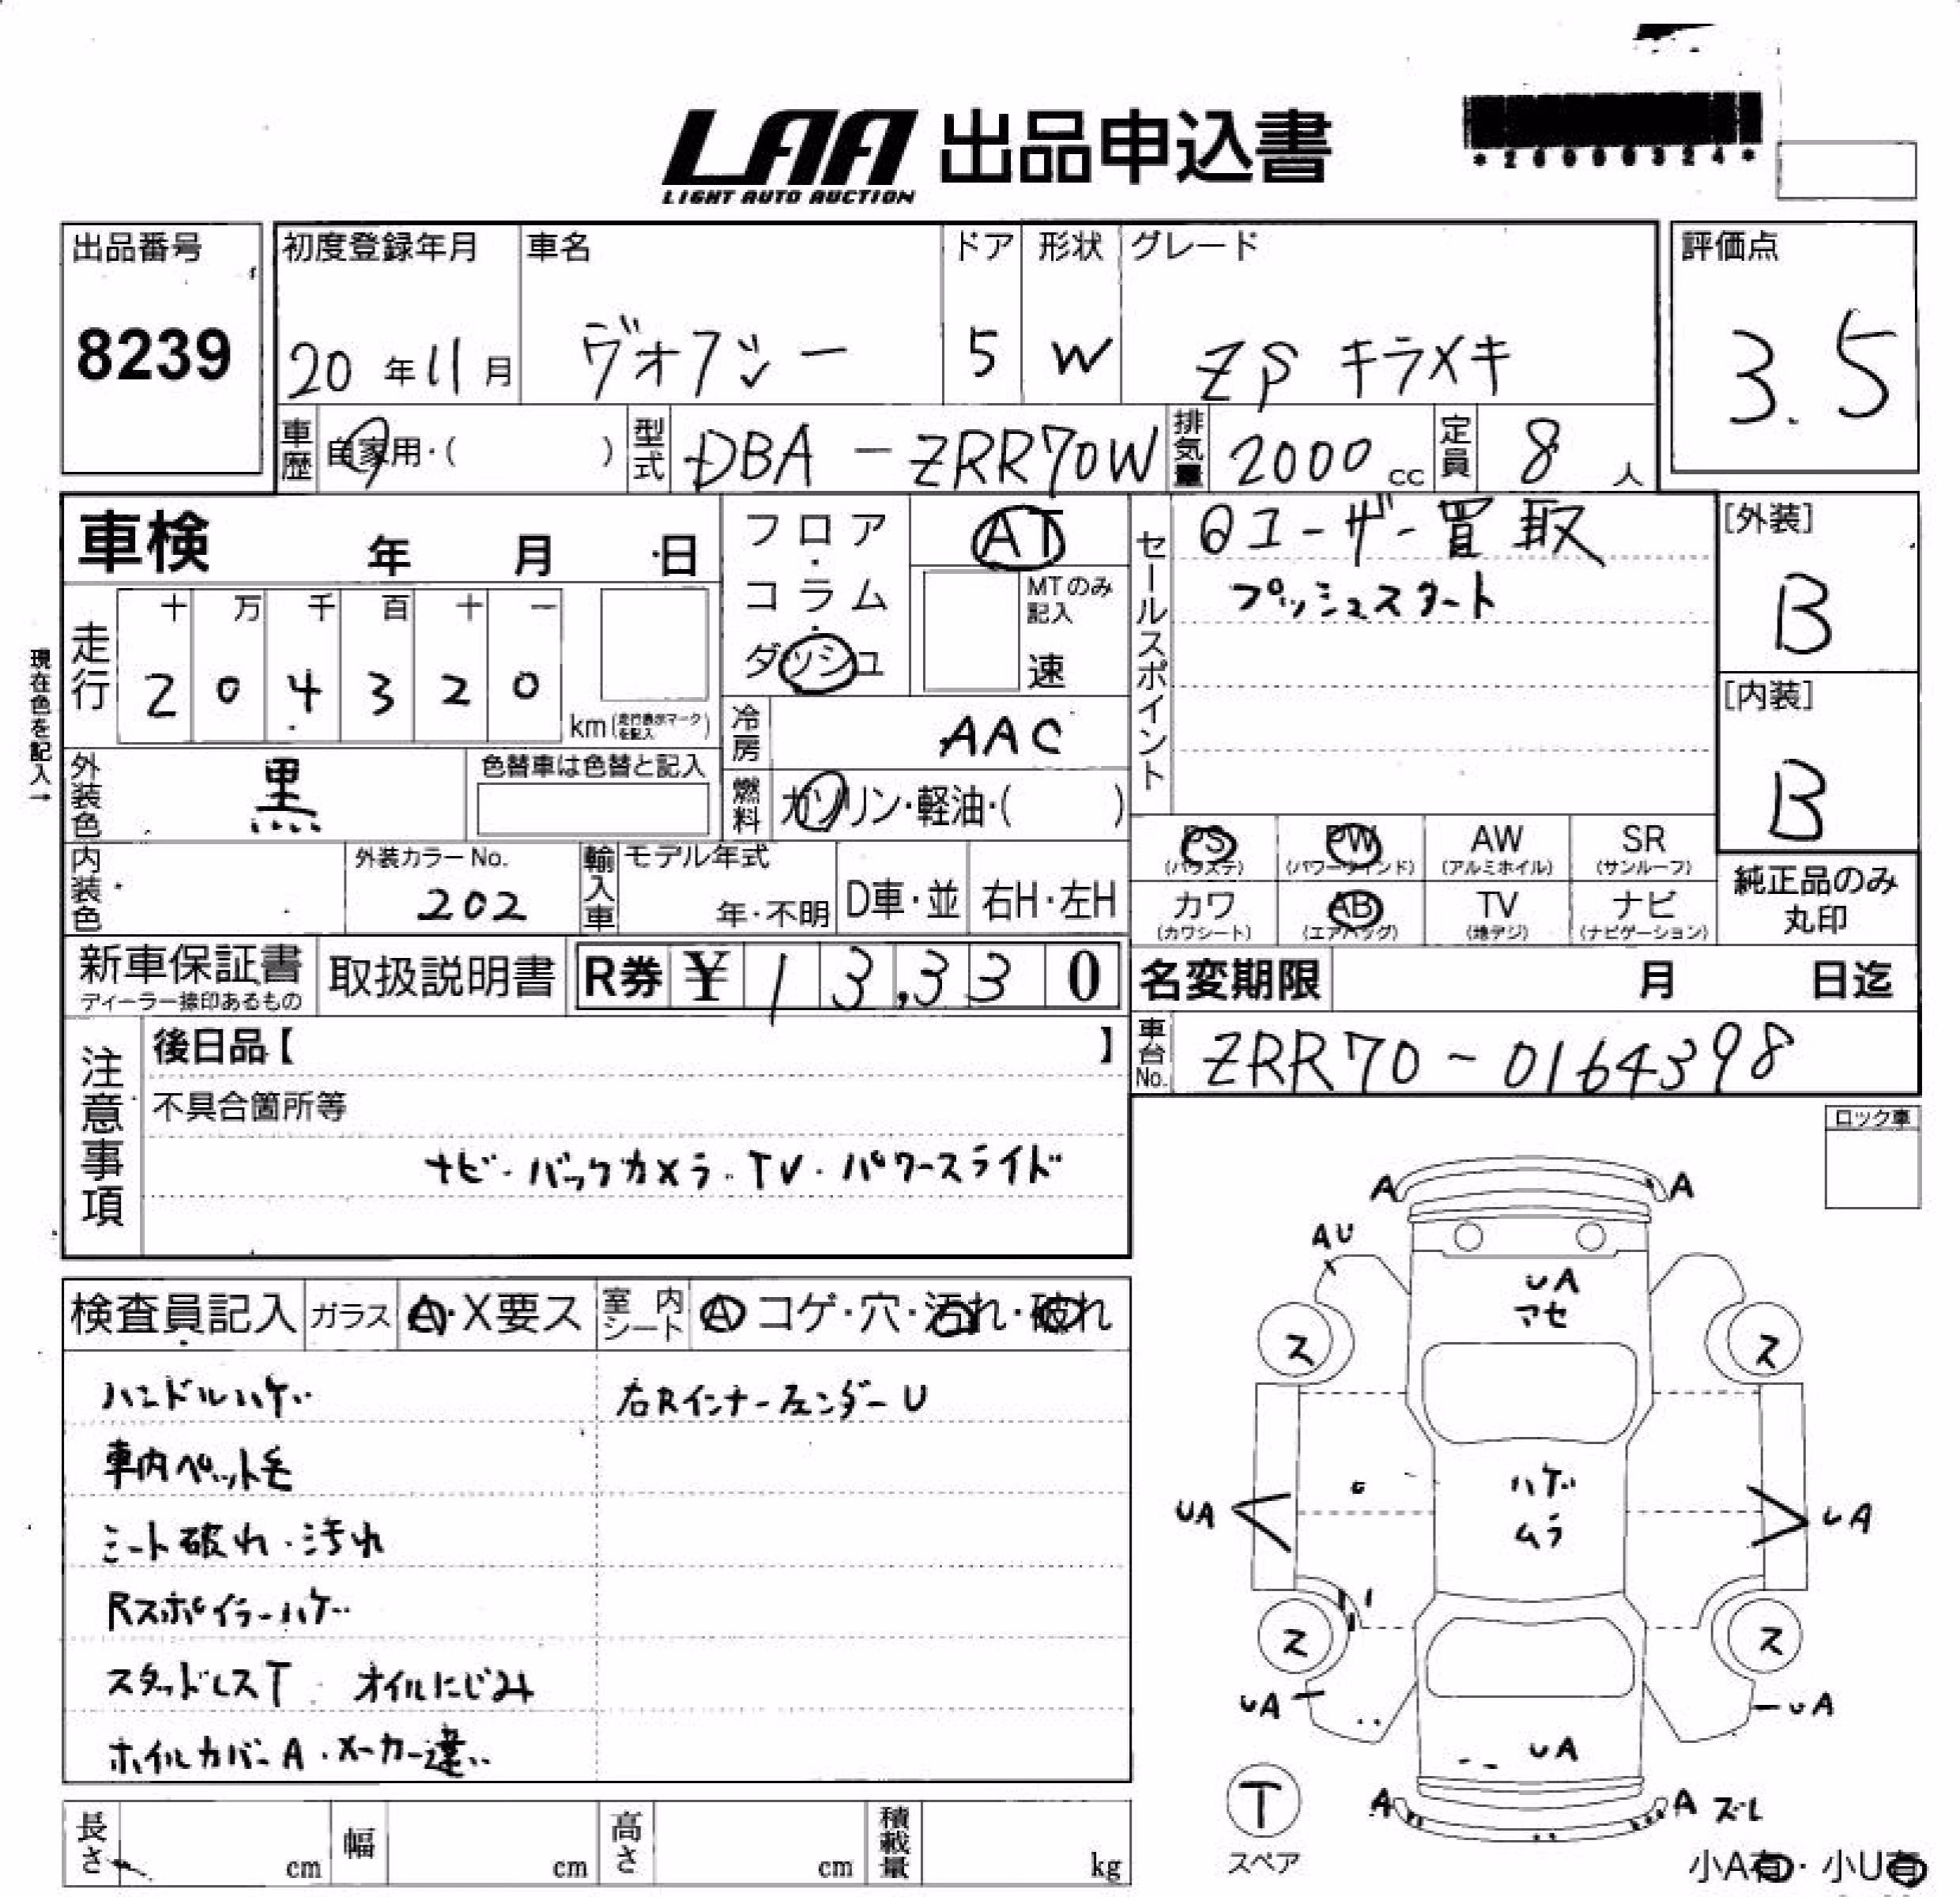 LAA 出品申込書
LIGHT AUTO AUCTION
出品番号
8239
初度登録年月
20年11月
車名
ヴォクシー
ドア
5
形状
W
グレード
ZS キラメキ
評価点
3.5
車歴
自家用・( )
型式
DBA-ZRR70W
排気量
2000 cc
定員
8 人
車検 年 月 日
フロア・コラム・ダッシュ
AT
MTのみ記入
速
セールスポイント
⊙ユーザー買取
プッシュスタート
[外装]
B
[内装]
B
現在色を記入→
走行
十 万 千 百 十 一
2 0 4 3 2 0
km(走行表示マークを記入)
冷房
AAC
外装色
黒
色替車は色替と記入
燃料
ガソリン・軽油・( )
内装色
外装カラーNo.
202
輸入車
モデル年式
年・不明
D車・並
右H・左H
PS PW AW SR
(パワステ) (パワーウインド) (アルミホイル) (サンルーフ)
カワ AB TV ナビ
(カワシート) (エアバッグ) (地デジ) (ナビゲーション)
純正品のみ
丸印
新車保証書
ディーラー捺印あるもの
取扱説明書
R券 ¥13,330
名変期限 月 日迄
車台No.
ZRR70-0164398
注意事項
後日品【 】
不具合箇所等
ナビ・バックカメラ・TV・パワースライド
ロック車
検査員記入
ガラス
A・X要ス
室内シート
A コゲ・穴・汚れ・破れ
ハンドルハゲ
右Rインナーフェンダー U
車内ペット毛
シート破れ・汚れ
Rスポイラーハゲ
スタッドレスT オイルにじみ
ホイルカバーA・メーカー違い
A A
AU
UA
アセ
ス ス
ハゲ
ムラ
UA UA
ス ス
UA UA
UA
A A ズレ
T
スペア
小A有・小U有
長さ cm
幅 cm
高さ cm
積載量 kg